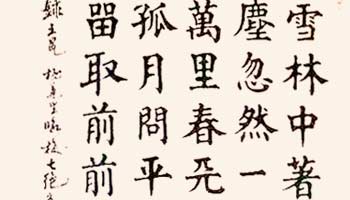 雪林中著
塵忽然一
萬里春
孤月問平
畱取前前
録王冕 七絕